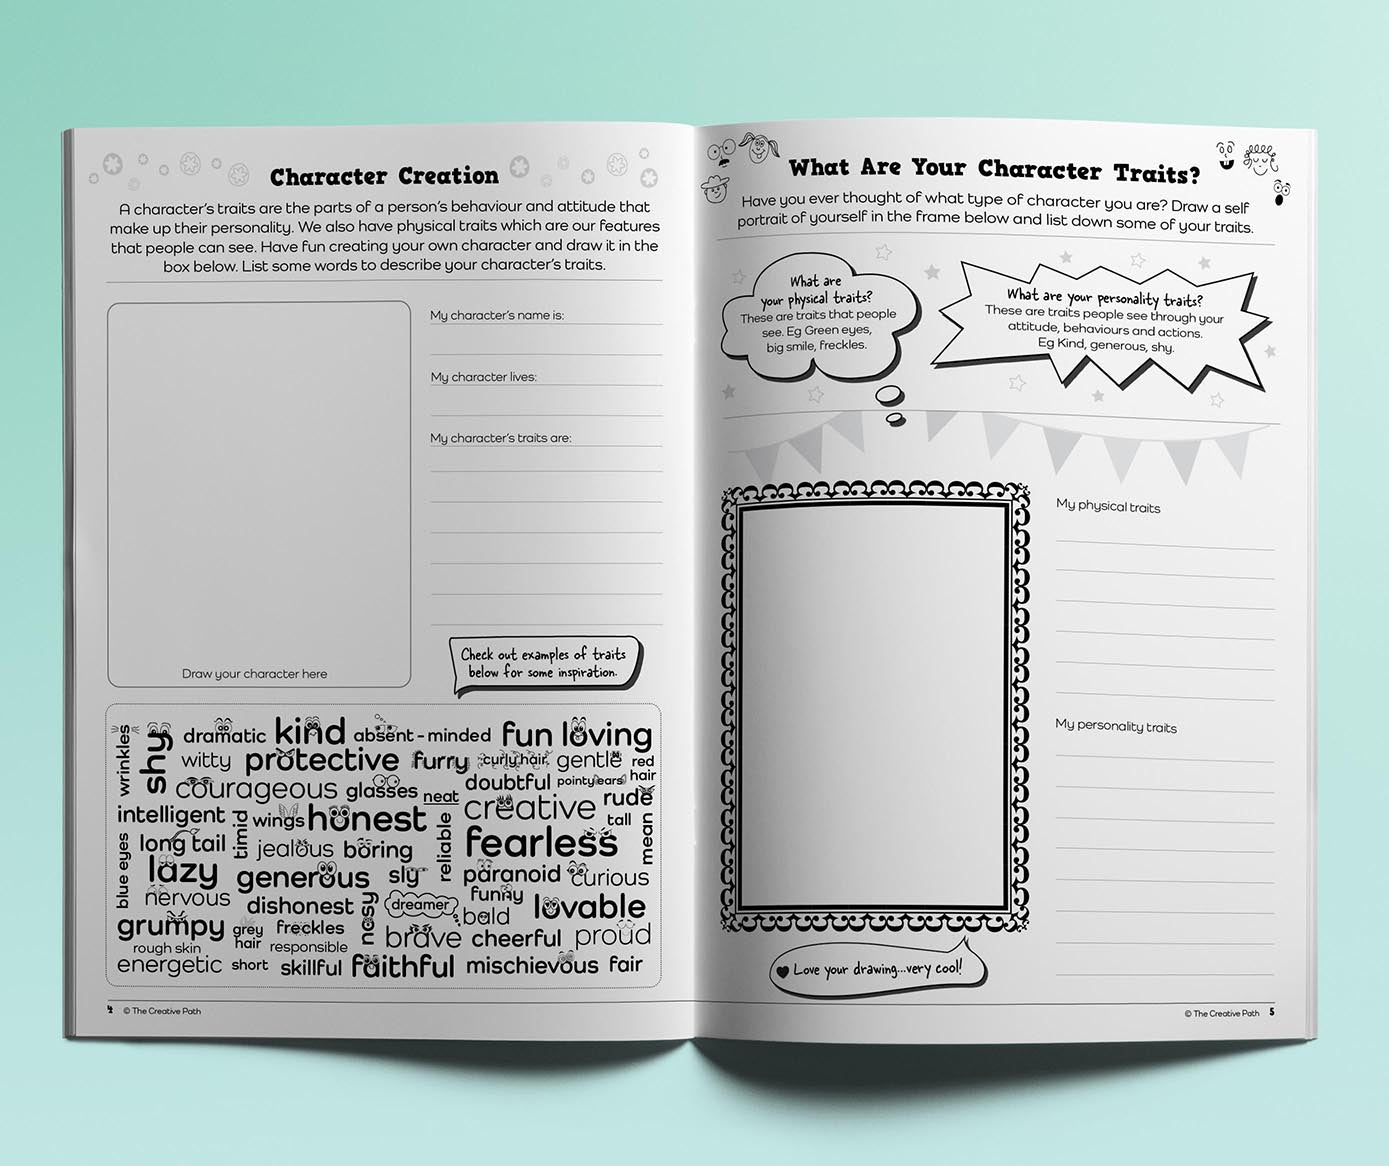 Character Creation
A character's traits are the parts of a person's behaviour and attitude that
make up their personality. We also have physical traits which are our features
that people can see. Have fun creating your own character and draw it in the
box below. List some words to describe your character's traits.
My character's name is:
My character lives:
My character's traits are:
Draw your character here
Check out examples of traits
below for some inspiration.
wrinkles
shy
dramatic kind absent-minded fun loving
witty protective furry curly hair gentle red
hair
courageous glasses neat doubtful pointy ears
intelligent timid wings honest creative rude
tall
mean
blue eyes
long tail jealous boring reliable fearless
lazy generous sly paranoid curious
nervous dishonest nosy dreamer funny
bald lovable
grumpy grey
hair
freckles brave cheerful proud
rough skin responsible
energetic short skillful faithful mischievous fair
4 © The Creative Path
What Are Your Character Traits?
Have you ever thought of what type of character you are? Draw a self
portrait of yourself in the frame below and list down some of your traits.
What are
your physical traits?
These are traits that people
see. Eg Green eyes,
big smile, freckles.
What are your personality traits?
These are traits people see through your
attitude, behaviours and actions.
Eg Kind, generous, shy.
My physical traits
My personality traits
Love your drawing...very cool!
© The Creative Path 5